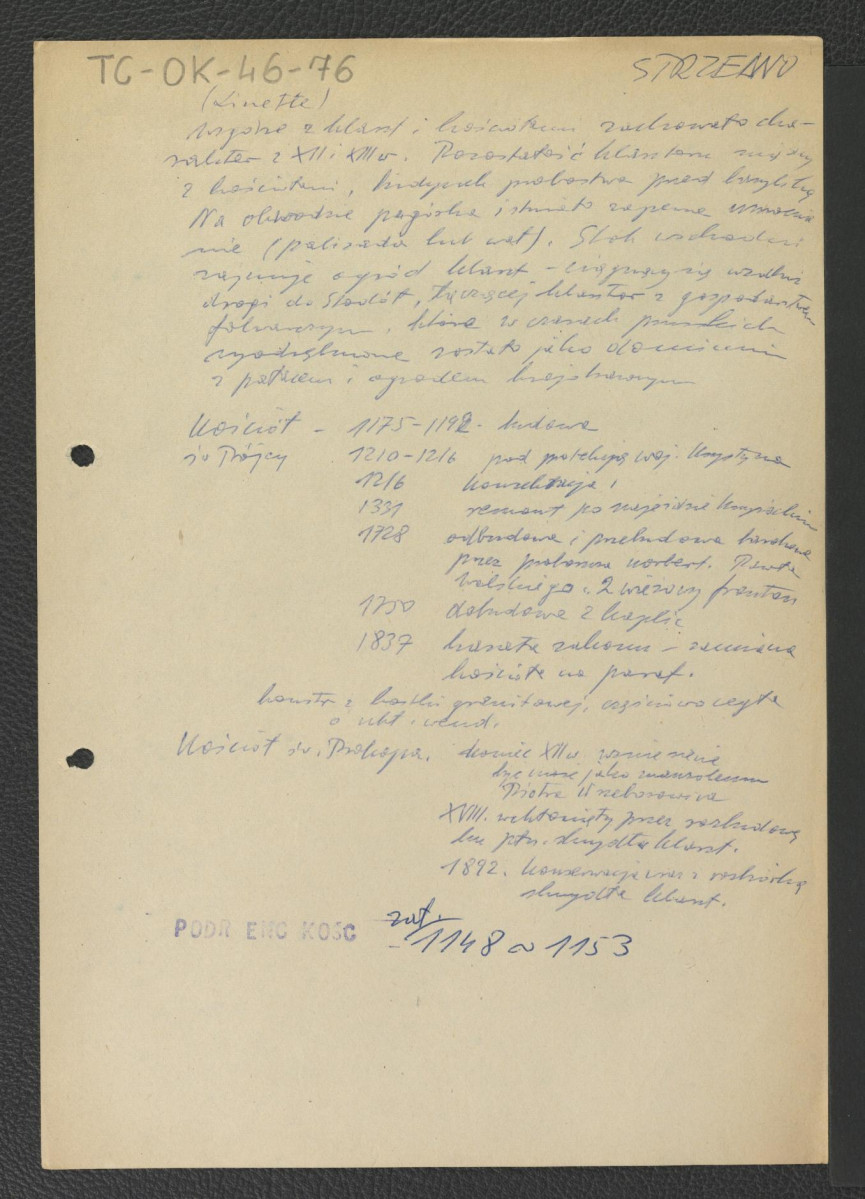 TC-OK-46-76
STRZELNO
(Linette)
Wzgórze z klaszt i kościołem zachowało cha-
rakter z XII i XIII w. Pozostałość klasztoru między
2 kościołami, budynek probostwa przed bazyliką
Na obwodzie pagórka istniało zapewne wzmocnie
nie (palisada lub wał). Stok wschodni
zajmuje ogród klaszt - ciągnący się wzdłuż
drogi do Stodół, łączącej klasztor z gospodarstwem
folwarcznym, które w czasach pruskich
wyodrębnione zostało jako domenium
z pałacem i ogrodem krajobrazowym
Kościół - 1175-1192 - budowa
św Trójcy 1210-1216 pod protekcją woj. Krystyna
1216 konsekracja
1331 remont po najeździe Krzyżackim
1728 odbudowa i przebudowa barokowa
przez proboszcza norbert. Pawła
Wolskiego. 2 wieżowy fronton
1750 dobudowa 2 kaplic
1837 kasata zakonu - zamiana
kościoła na paraf.
konstr z kostki granitowej, częściowo cegła
o ukł. wend.
Kościół św. Prokopa. koniec XII w. wzniesienie
być może jako mauzoleum
Piotra Wszeborowica
XVIII. wchłonięty przez rozbudowę
ku płn. skrzydła klaszt.
1892. Konserwacja wraz z rozbiórką
skrzydła klaszt.
PODR ENC KOŚC
zał.
- 1148 ~ 1153